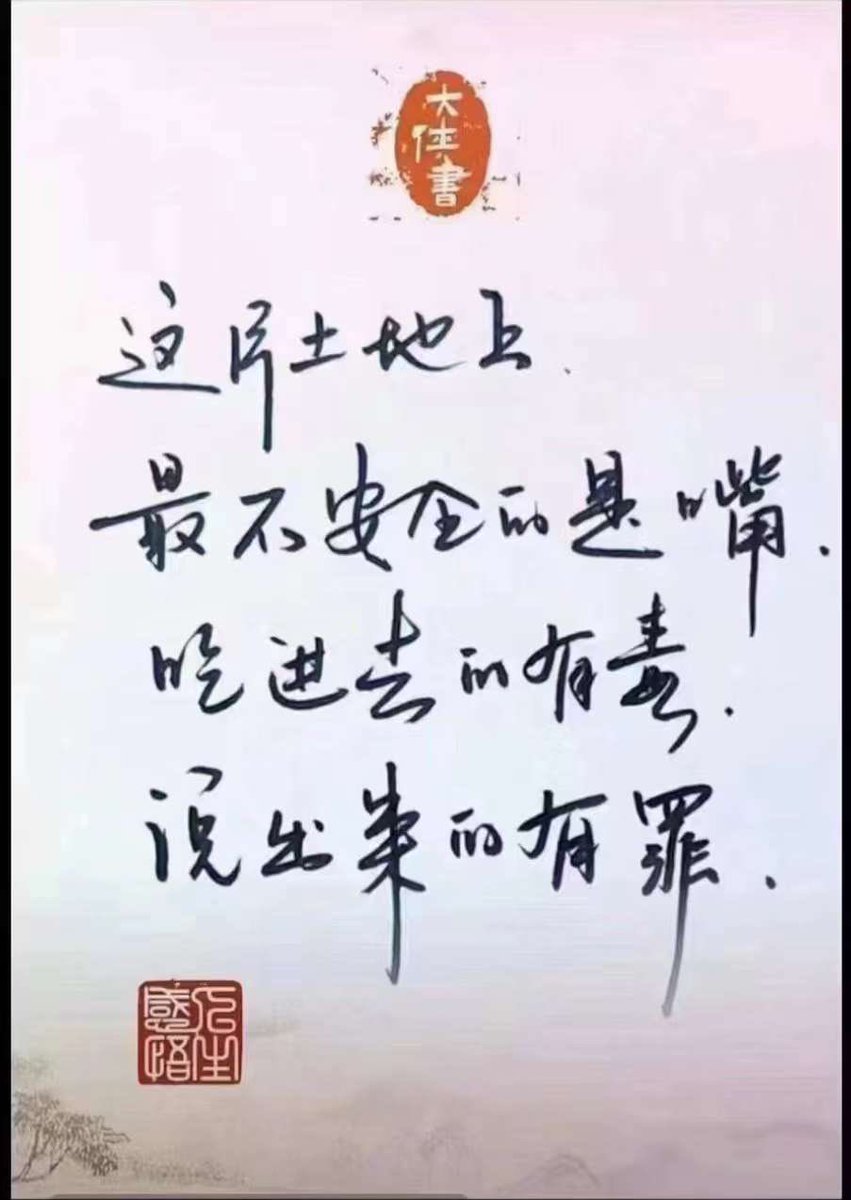 大仹書
这片土地上.
最不安全的是嘴.
吃进去的有毒.
说出来的有罪.
人生感悟